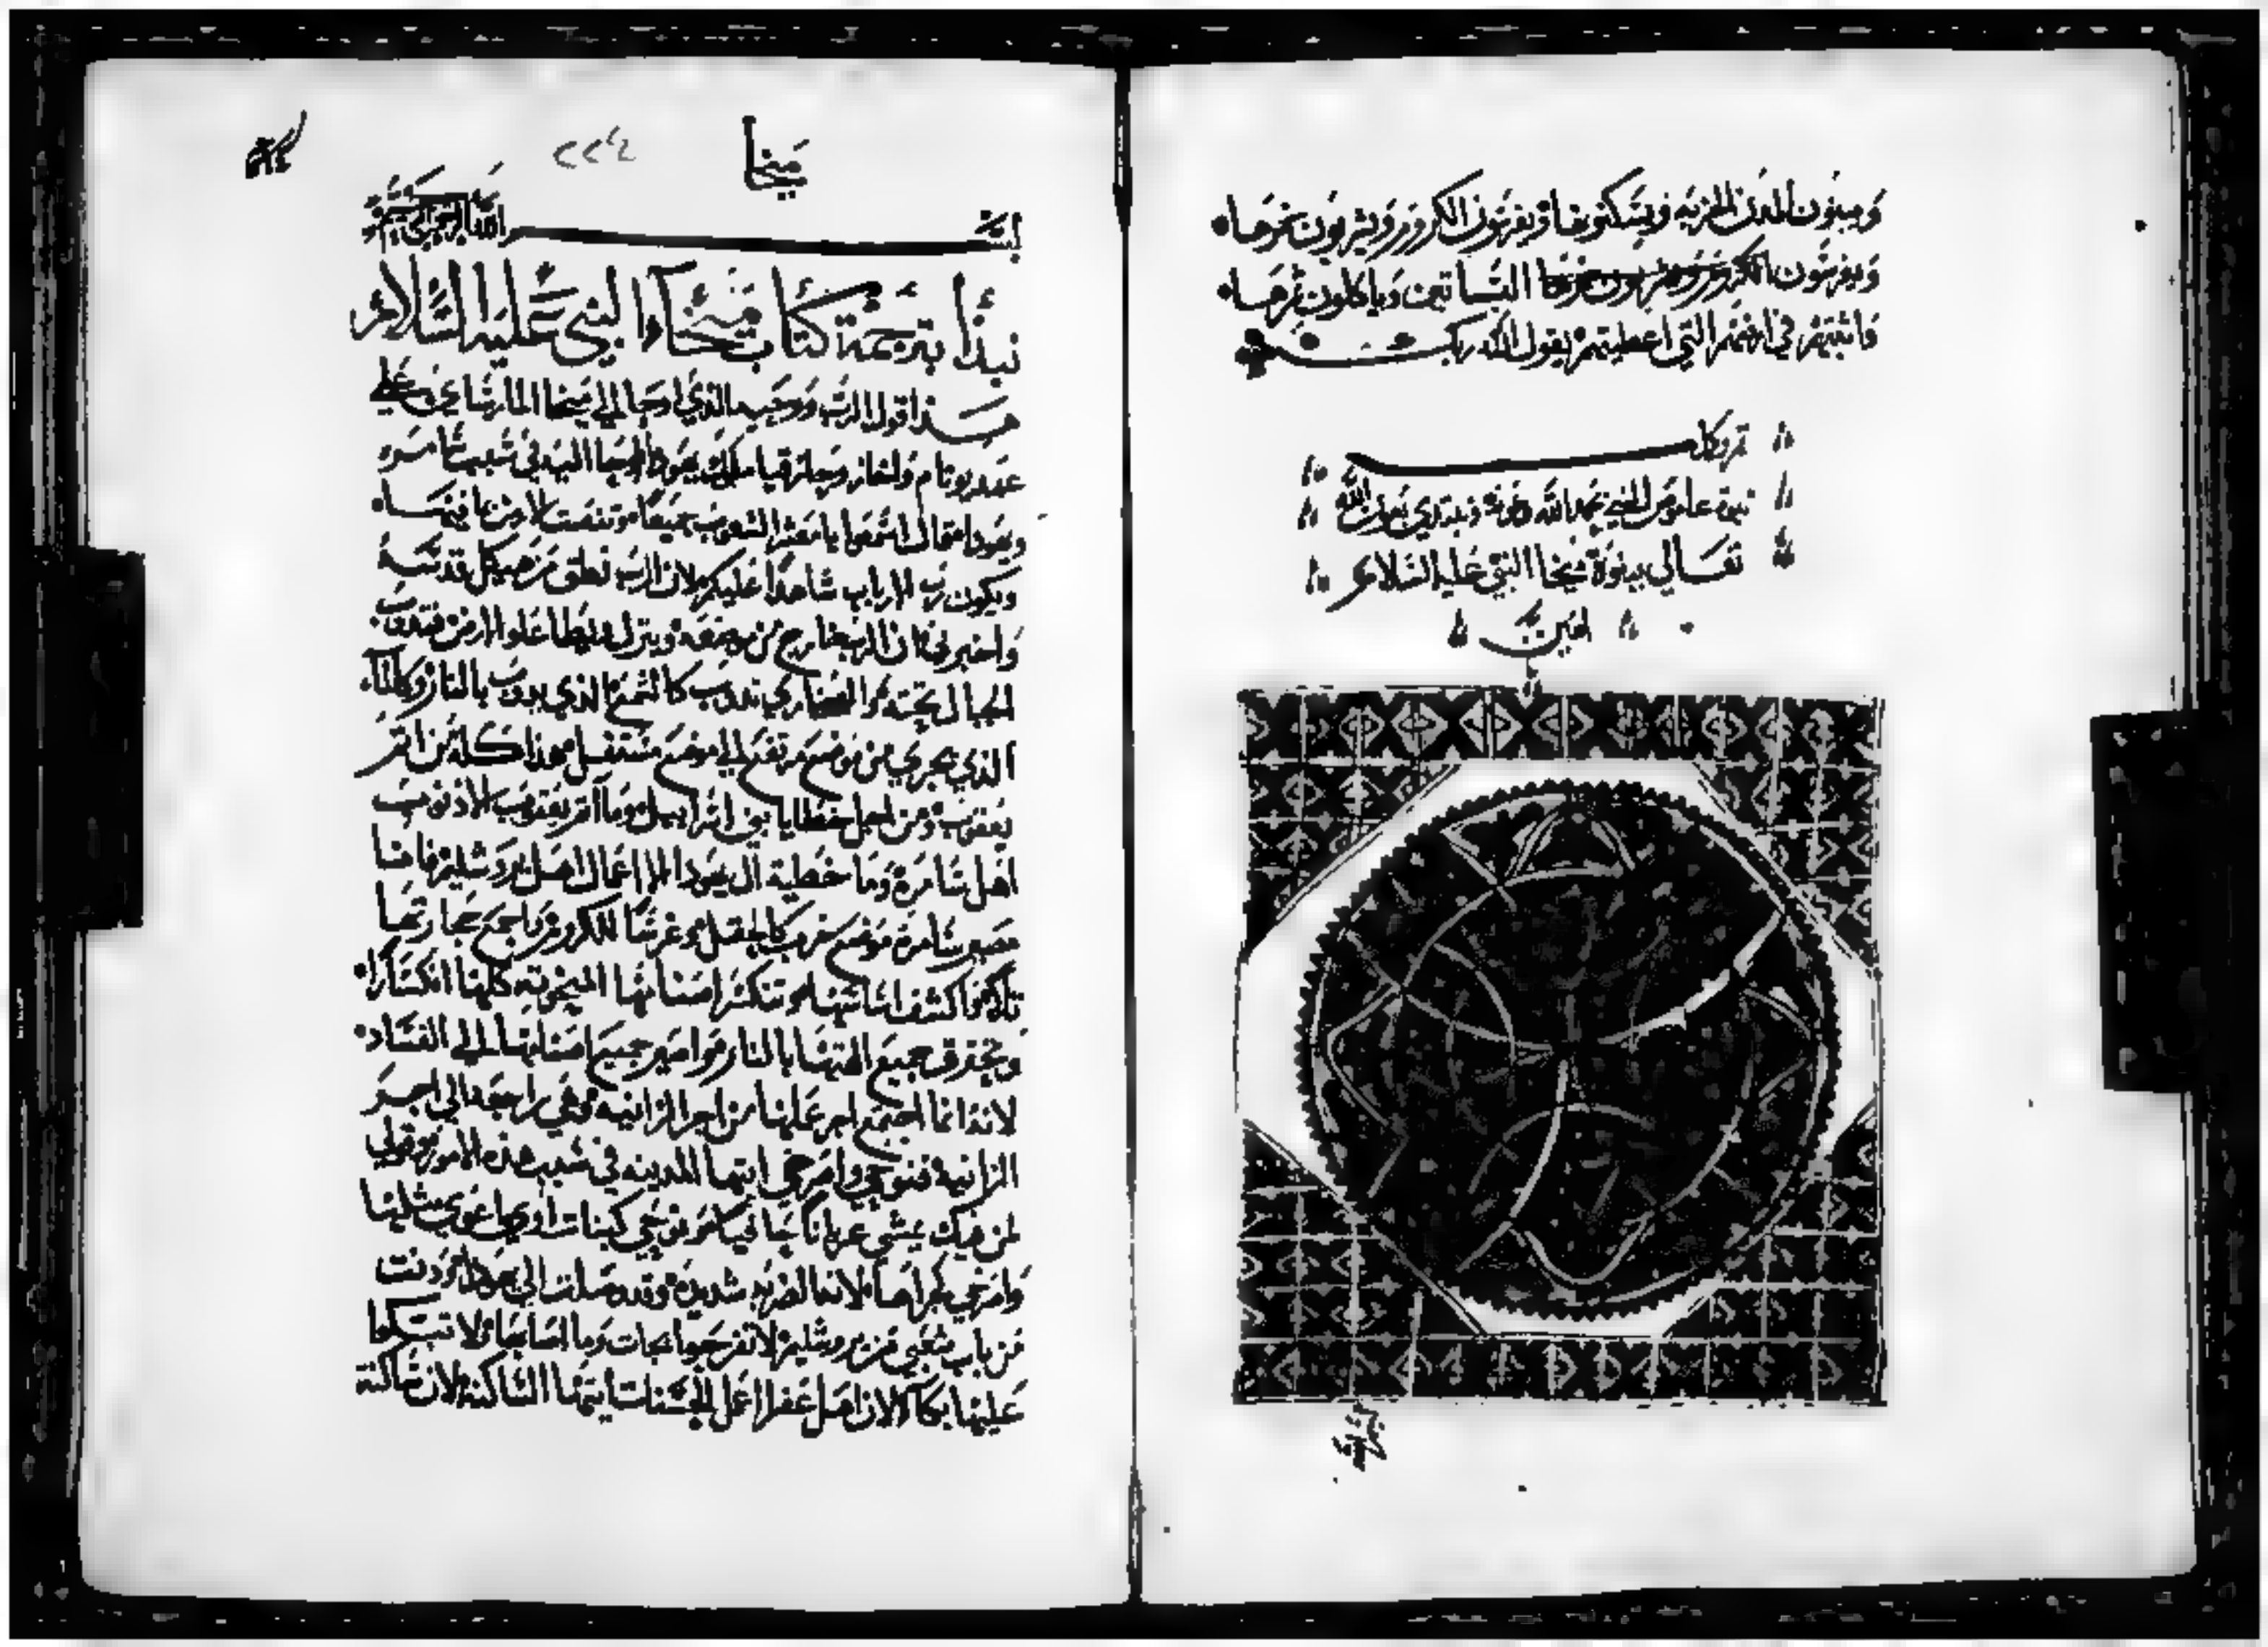 ويبنون المدن الخربه ويسكنونها ويغرسون الكروم ويشربون خمرها
ويغرسون الكروم ويشربون خمرها البساتين وياكلون ثمرها
واثبتهم في ارضهم التي اعطيتهم يقول الله ربك
تم وكمل
نبوة عاموص النبي بحمد الله وعونه ونبتدي بعون الله
تعالي بنبوة ميخا النبي عليه السلام
امين
ميخا
بسم الله الرحمن الرحيم
نبدأ بترجمة كتاب ميخا النبي عليه السلام
هذا قول الرب ووحيه الذي اوحا الي ميخا المارشاي علي
عهد يوثام واحاز وحازقيا ملك يهودا اوحيا اليه في شبب شامره
ويهودا فقال اسمعوا يا معشر الشعوب جميعا وتنصت الارض بما فيها
ويكون رب الارباب شاهدا عليكم لان الرب نطق من هيكل قدسه
واخبر بان الرب خارج من موضعه وينزل فيطا علو الارض فتدوب
الجبال تحته والصحاري تدوب كالشمع الذي يدوب بالنار وكالماء
الذي يجري من موضع مرتفع الي موضع مستفل هذا كله من اثم
يعقوب ومن اجل خطايا بني اسراييل وما اثم يعقوب الا ذنوب
اهل شامرة وما خطية ال يهودا الا اعمال اهل يروشليم فاضا
تصير شامرة موضع خرب كالحقل وغرسا للكروم واجمع حجارتها
تلا واكشف اساساتها وتنكسر اصنامها المنحوته كلها انكسارا
وتحترق جميع الهتها بالنار واصير جميع اصنامها الي الفساد
لانه انما اجتمع اجر عملها من اجر الزانيه وهي راجعه الي اجر
الزانيه فنوحي واصرخي ايتها المدينه في سبب هذه الامور وقولي
لمن فيك يمشي عريانا حافيا ثم نوحي كبنات اوي واعوي مثلها
واصرخي لانها الضربه شديده وقد وصلت الي يهودا ودنت
من باب شعبي من يروشليم لا تفرحوا بجات وما اصابها ولا تبكوا
عليها بكاء لان اهل عفرا اعمل الجسنات ايتها الساكنه لان ساكنة